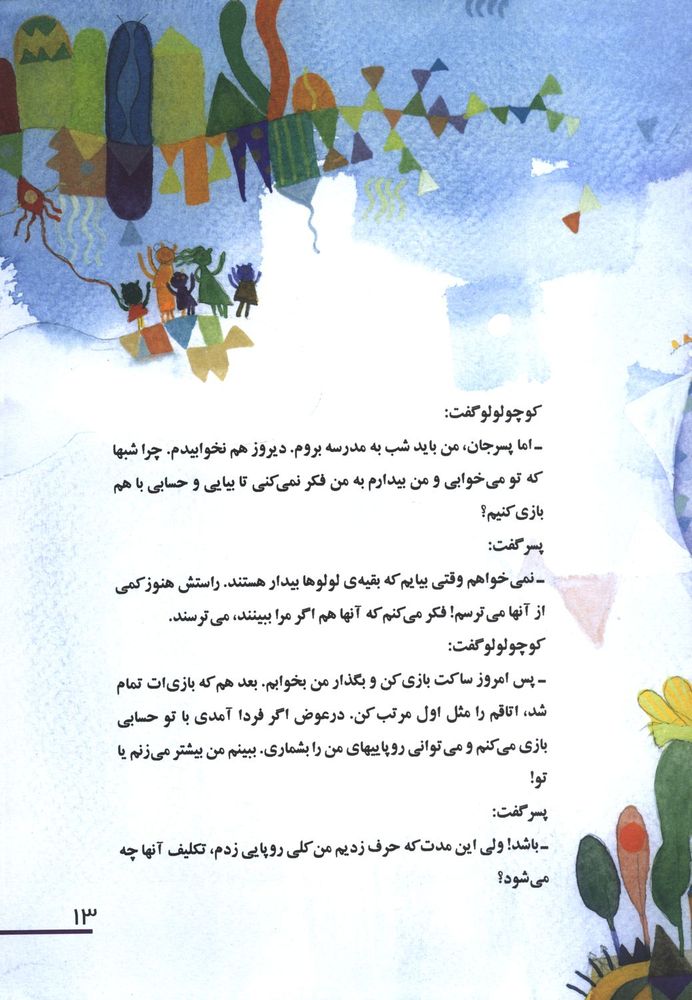 کوچولولو گفت:
ـ اما پسرجان، من باید شب به مدرسه بروم. دیروز هم نخوابیدم. چرا شبها
که تو می‌خوابی و من بیدارم به من فکر نمی‌کنی تا بیایی و حسابی با هم
بازی کنیم؟
پسر گفت:
ـ نمی‌خواهم وقتی بیایم که بقیه‌ی لولوها بیدار هستند. راستش هنوز کمی
از آنها می‌ترسم! فکر می‌کنم که آنها هم اگر مرا ببینند، می‌ترسند.
کوچولولو گفت:
ـ پس امروز ساکت بازی کن و بگذار من بخوابم. بعد هم که بازی‌ات تمام
شد، اتاقم را مثل اول مرتب کن. درعوض اگر فردا آمدی با تو حسابی
بازی می‌کنم و می‌توانی روپاییهای من را بشماری. ببینم من بیشتر می‌زنم یا
تو!
پسر گفت:
ـ باشد! ولی این مدت که حرف زدیم من کلی روپایی زدم، تکلیف آنها چه
می‌شود؟
۱۳